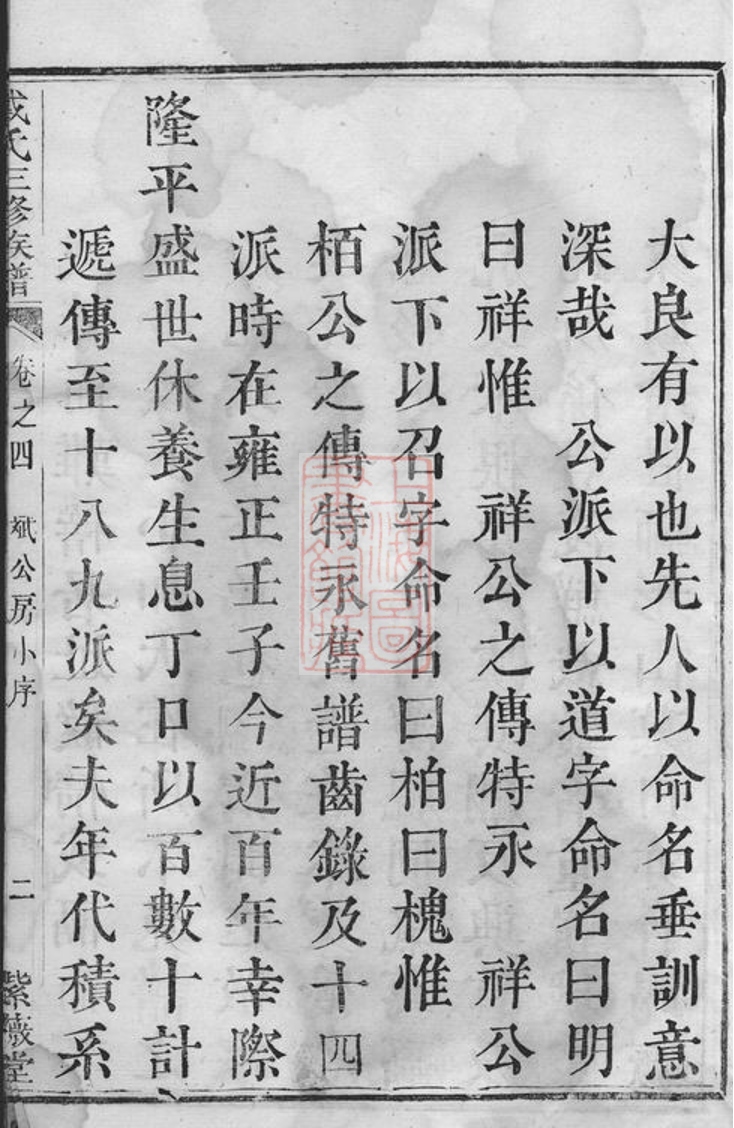 大良有以也先人以命名垂訓意
深哉　公派下以道字命名曰明
曰祥惟　祥公之傳特永　祥公
派下以召字命名曰柏曰槐惟
栢公之傳特永舊譜齒錄及十四
派時在雍正壬子今近百年幸際
隆平盛世休養生息丁口以百數十計
遞傳至十八九派矣夫年代積系
氏三修族譜　卷之四　斌公房小序　二　紫薇堂